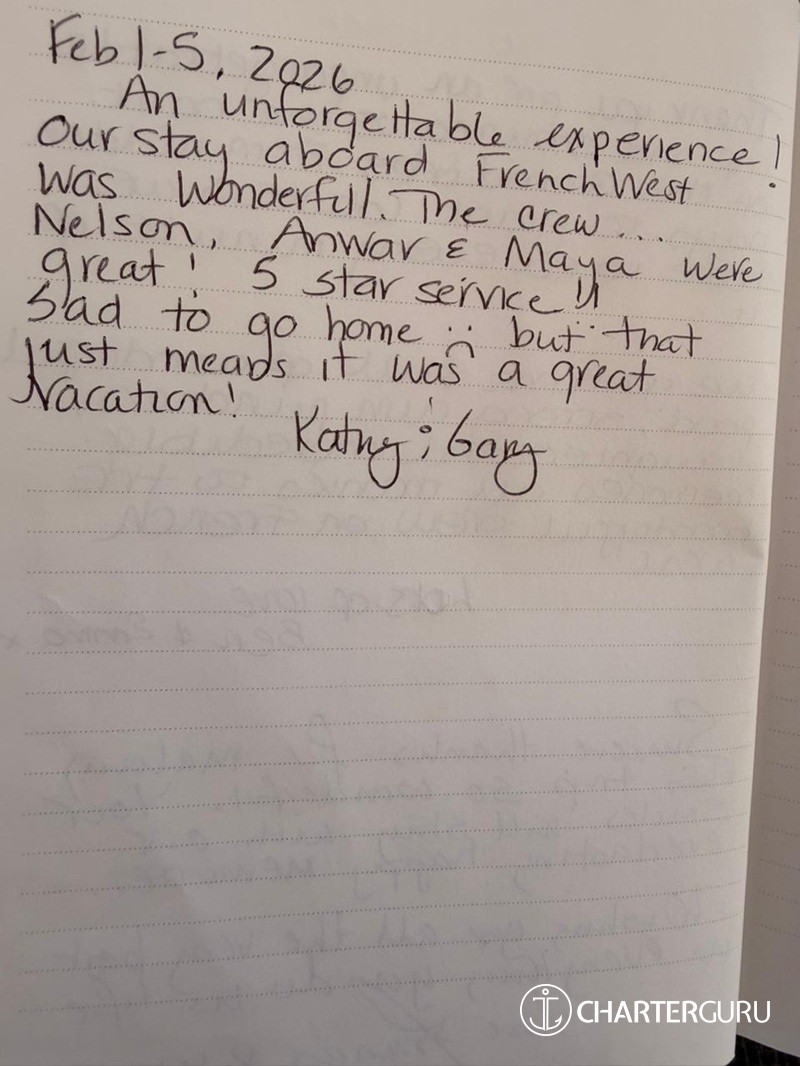 Feb 1-5, 2026
An unforgettable experience!
Our stay aboard French West
was wonderful. The crew...
Nelson, Anwar & Maya were
great! 5 star service!!
Sad to go home :( but that
just means it was a great
Vacation!
Kathy & Gary
CHARTERGURU